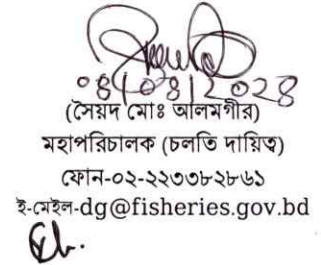 ০৪/০৪/২০২৪
(সৈয়দ মোঃ আলমগীর)
মহাপরিচালক (চলতি দায়িত্ব)
ফোন-০২-২২৩৩৮২৮৬১
ই-মেইল-dg@fisheries.gov.bd